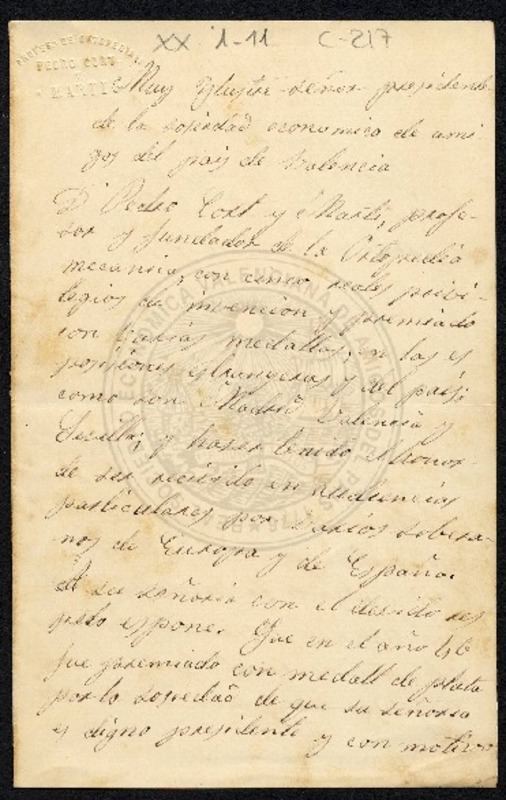 XX 1-11 C-217
PEDRO CORT
MARTI
Muy Ylustre señor presidente
de la sosiedad economica de ami-
gos del pais de Valencia
D. Pedro Cort y Marti, profe-
sor y fundador de la Ortopedia
mecanica, con cinco reales privi-
legios de invencion y premiado
con varias medallas, en las es
posiciones estrangeras y del pais,
como son Madrid Valencia y
Sevilla, y haver tenido el honor
de ser recivido en audiencias
particulares por varios sobera-
nos de Europa y de España.
A su señoria con el devido res
peto espone. Que en el año 46
fue premiado con medall de plata
por la sosiedad de que su señoria
es digno presidente y con motivo